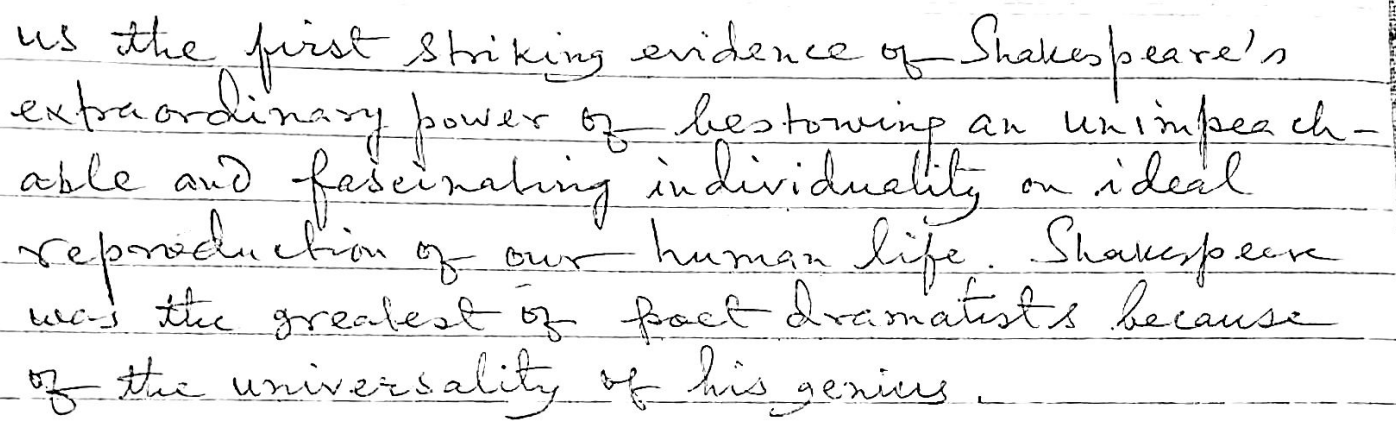 us the first striking evidence of Shakespeare's
extraordinary power of bestowing an unimpeach-
able and fascinating individuality on ideal
reproduction of our human life. Shakespeare
was the greatest of poet dramatists because
of the universality of his genius.